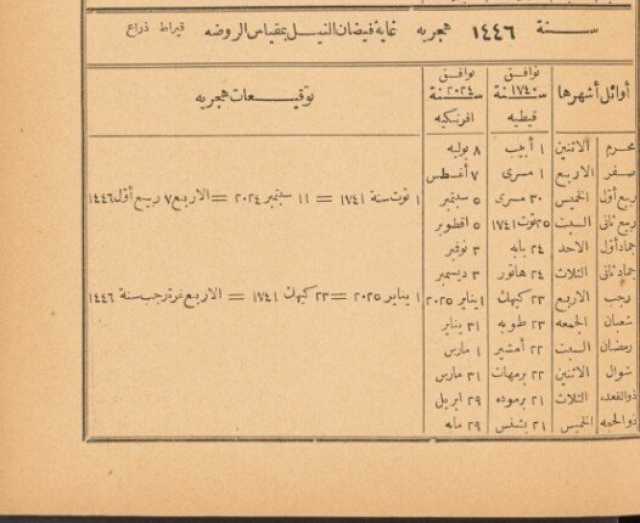 سنة ١٤٤٦ هجريه غاية فيضان النيل بمقياس الروضه قيراط ذراع
أوائل أشهرها توافق سنة ١٧٤٠ قبطيه توافق سنة ٢٠٢٤ افرنكيه توقيعات هجريه
محرم الاثنين ١ أبيب ٨ يوليه
صفر الاربع ١ مسرى ٧ أغسطس
ربيع أول الخميس ٣٠ مسرى ٥ سبتمبر ١ توت سنة ١٧٤١ = ١١ سبتمبر ٢٠٢٤ = الاربع ٧ ربيع أول ١٤٤٦
ربيع ثانى السبت ٢٥ توت ١٧٤١ ٥ اقطوبر
جماد أول الاحد ٢٤ بابه ٣ نوفبر
جماد ثانى الثلاث ٢٤ هاتور ٣ ديسمبر
رجب الاربع ٢٣ كيهك ١ يناير ٢٠٢٥ ١ يناير ٢٠٢٥ = ٢٣ كيهك ١٧٤١ = الاربع غرة رجب سنة ١٤٤٦
شعبان الجمعه ٢٣ طوبه ٣١ يناير
رمضان السبت ٢٢ أمشير ١ مارس
شوال الاثنين ٢٢ برمهات ٣١ مارس
ذوالقعده الثلاث ٢١ برموده ٢٩ ابريل
ذوالحجه الخميس ٢١ بشنس ٢٩ مايه